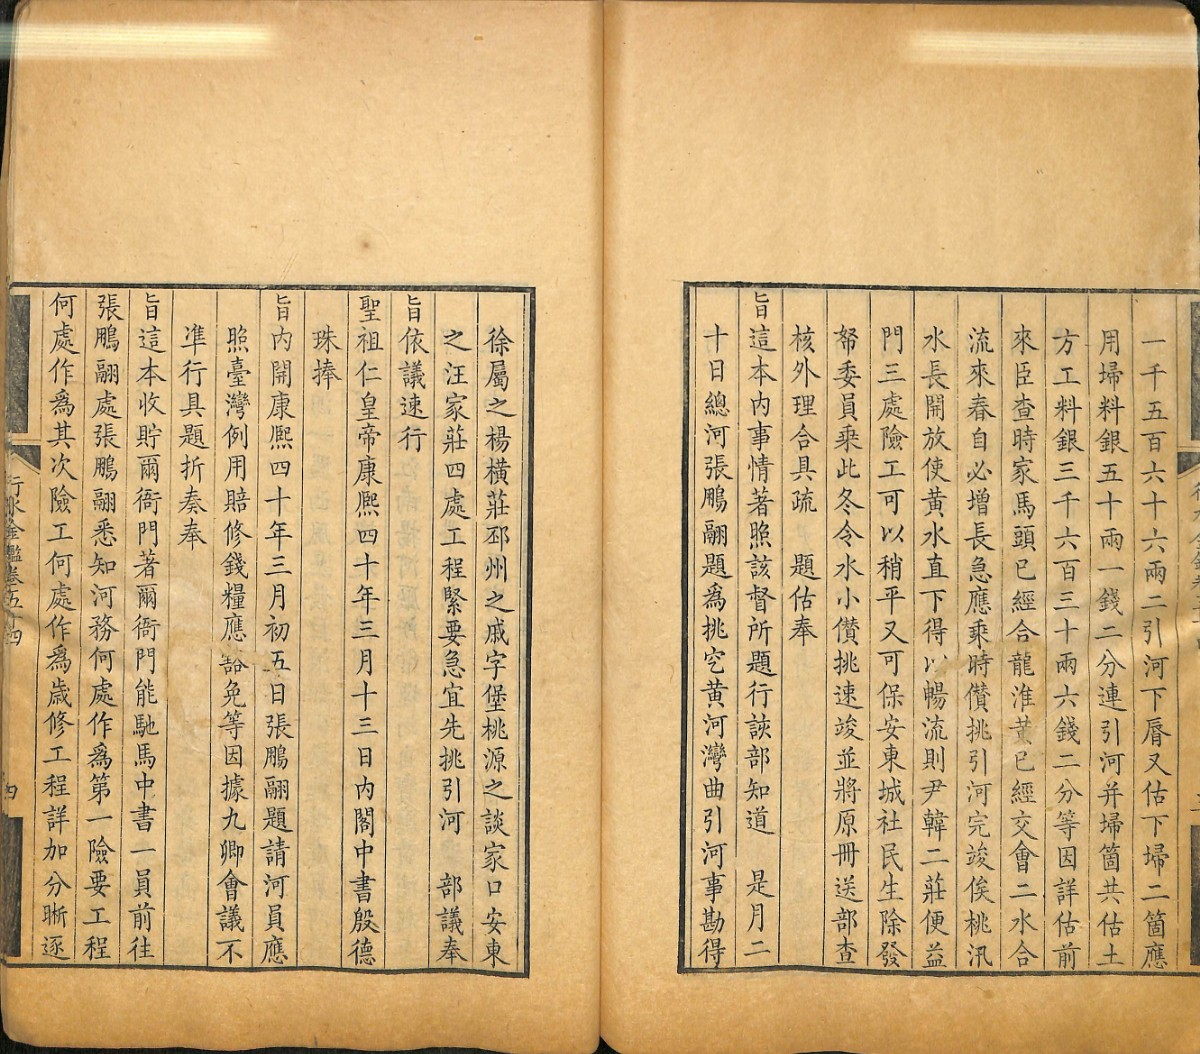 一千五百六十六兩二引河下脣又估下埽二箇應
用埽料銀五十兩一錢二分連引河并埽箇共估土
方工料銀三千六百三十兩六錢二分等因詳估前
來臣查時家馬頭已經合龍淮黃已經交會二水合
流來春自必增長急應乘時儹挑引河完竣俟桃汛
水長開放使黃水直下得以暢流則尹韓二莊便益
門三處險工可以稍平又可保安東城社民生除發
帑委員乘此冬令水小儹挑速竣並將原冊送部查
核外理合具疏 題估奉
旨這本內事情著照該督所題行該部知道 是月二
十日總河張鵬翮題為挑穵黃河灣曲引河事勘得
徐屬之楊橫莊邳州之戚字堡桃源之談家口安東
之汪家莊四處工程緊要急宜先挑引河 部議奉
旨依議速行
聖祖仁皇帝康熈四十年三月十三日內閣中書殷德
珠捧
旨內開康熈四十年三月初五日張鵬翮題請河員應
照臺灣例用賠修錢糧應豁免等因據九卿會議不
準行具題折奏奉
旨這本收貯爾衙門著爾衙門能馳馬中書一員前往
張鵬翮處張鵬翮悉知河務何處作爲第一險要工程
何處作爲其次險工何處作爲歲修工程詳加分晰逐
行水金鑑卷五十四
四